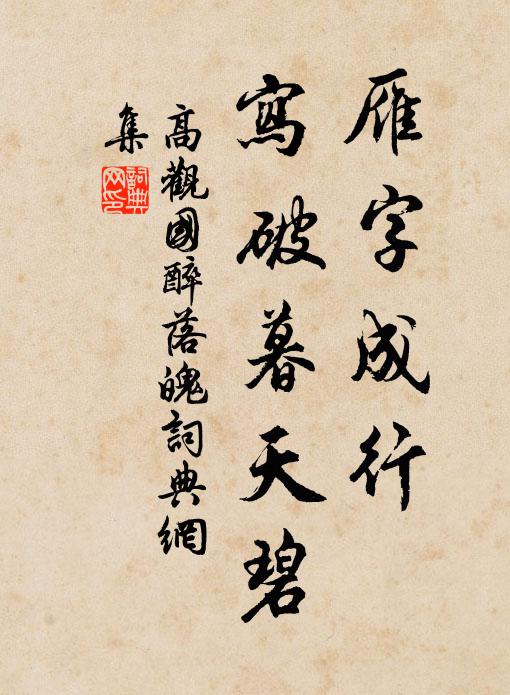 雁字成行
寫破暮天碧
高觀國醉落魄詞典網
集
詞典
网印